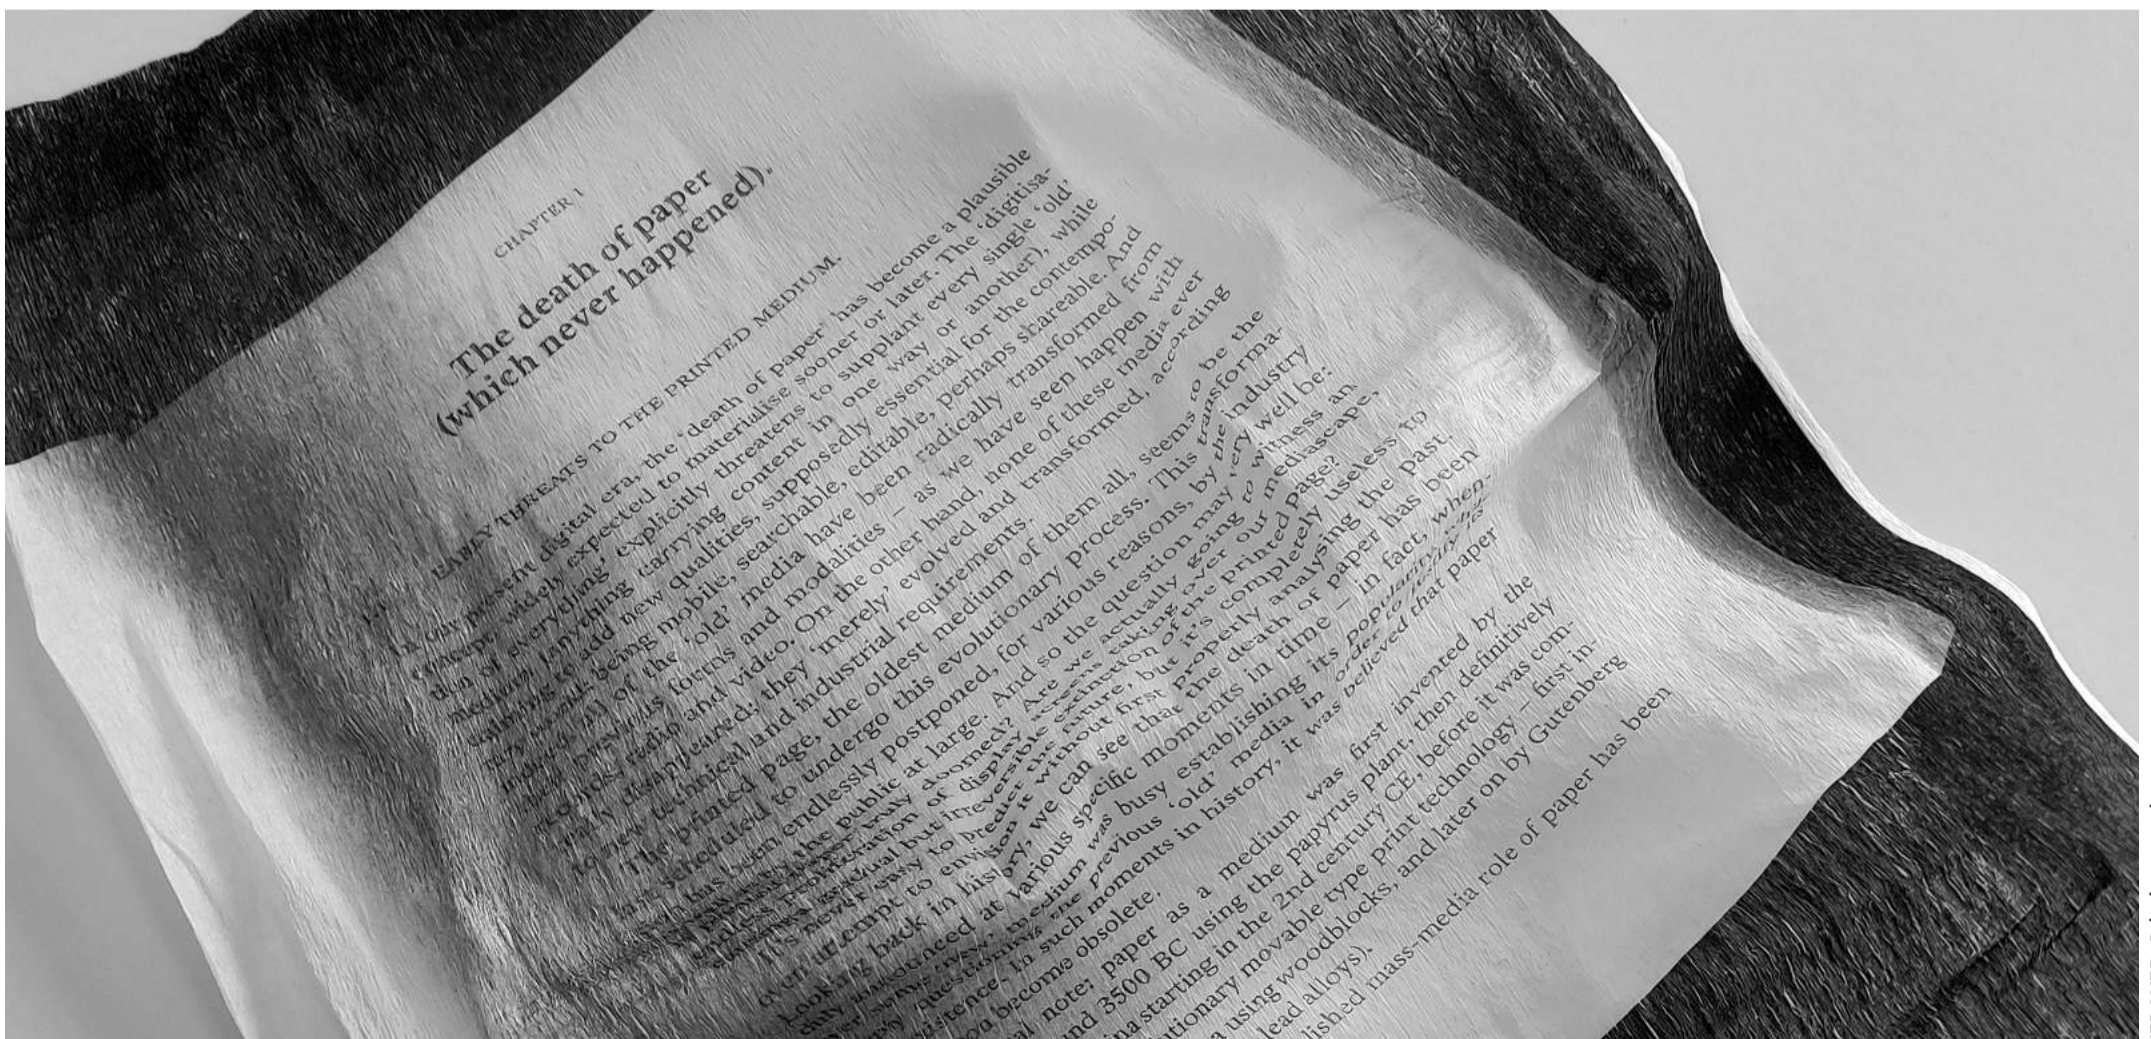 CHAPTER 1
The death of paper
(which never happened).
EARLY THREATS TO THE PRINTED MEDIUM.
In our present digital era, the ‘death of paper’ has become a plausible
concept, widely expected to materialise sooner or later. The ‘digitisa-
tion of everything’ explicitly threatens to supplant every single ‘old’
medium (anything carrying content in one way or another), while
claiming to add new qualities, supposedly essential for the contempo-
rary world: being mobile, searchable, editable, perhaps shareable. And
indeed, all of the ‘old’ media have been radically transformed from
their previous forms and modalities – as we have seen happen with
records, radio and video. On the other hand, none of these media ever
really disappeared; they ‘merely’ evolved and transformed, according
to new technical and industrial requirements.
The printed page, the oldest medium of them all, seems to be the
last scheduled to undergo this evolutionary process. This transforma-
tion has been endlessly postponed, for various reasons, by the industry
the public at large. And so the question may very well be:
truly doomed? Are we actually going to witness an
of display screens taking over our mediascape,
gradual but irreversible extinction of the printed page?
It's never easy to predict the future, but it's completely useless to
even attempt to envision it without first properly analysing the past.
Looking back in history, we can see that the death of paper has been
duly announced at various specific moments in time – in fact, when-
ever some ‘new’ medium was busy establishing its popularity
questioning the previous ‘old’ media in order to
existence. In such moments in history, it was believed that paper
become obsolete.
note: paper as a medium was first invented by the
3500 BC using the papyrus plant, then definitively
starting in the 2nd century CE, before it was com-
movable type print technology – first in-
using woodblocks, and later on by Gutenberg
lead alloys).
mass-media role of paper has been